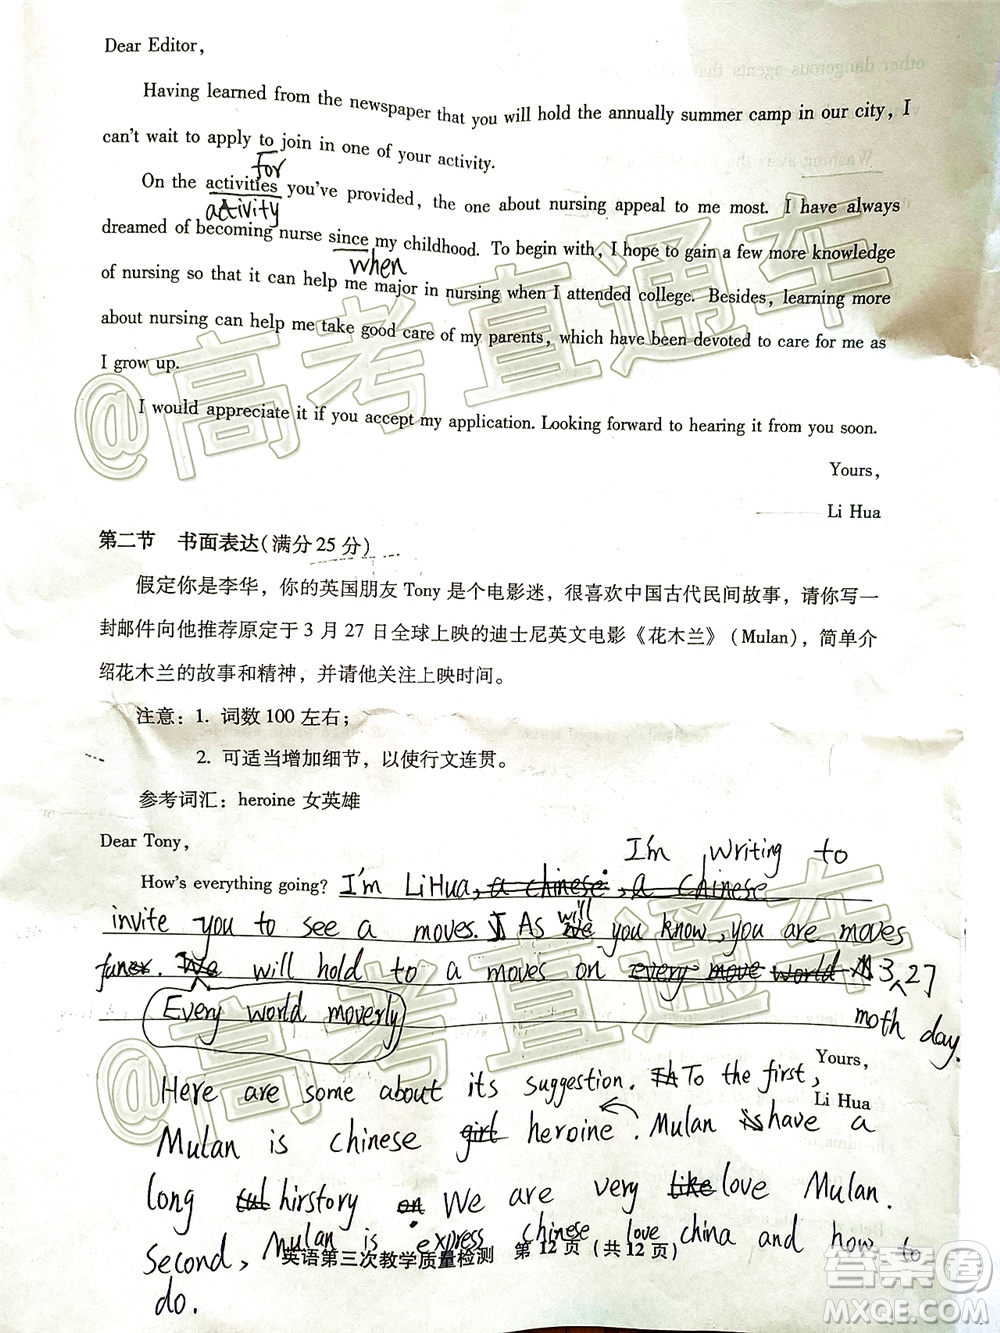 Dear Editor,
Having learned from the newspaper that you will hold the annually summer camp in our city, I
can't wait to apply to join in one of your activity.
for
On the activities you've provided, the one about nursing appeal to me most. I have always
activity
dreamed of becoming nurse since my childhood. To begin with, I hope to gain a few more knowledge
when
of nursing so that it can help me major in nursing when I attended college. Besides, learning more
about nursing can help me take good care of my parents, which have been devoted to care for me as
I grow up.
I would appreciate it if you accept my application. Looking forward to hearing it from you soon.
Yours,
Li Hua
第二节 书面表达(满分 25 分)
假定你是李华，你的英国朋友 Tony 是个电影迷，很喜欢中国古代民间故事，请你写一
封邮件向他推荐原定于 3 月 27 日全球上映的迪士尼英文电影《花木兰》(Mulan)，简单介
绍花木兰的故事和精神，并请他关注上映时间。
注意：1. 词数 100 左右；
2. 可适当增加细节，以使行文连贯。
参考词汇：heroine 女英雄
Dear Tony,
I'm writing to
How's everything going? I'm LiHua, a chinese, a Chinese
invite you to see a moves. As will you know, you are moves
will hold to a moves on every move world 3,27
Every world moverly
moth day.
Yours,
Here are some about its suggestion. To the first,
Li Hua
Mulan is chinese girl heroine. Mulan is have a
long hirstory on We are very like love Mulan.
Second, Mulan is express chinese love china and how to
英语第三次教学质量检测 第 12 页 (共 12 页)
do.
@高考直通车
答案圈
MXQE.COM